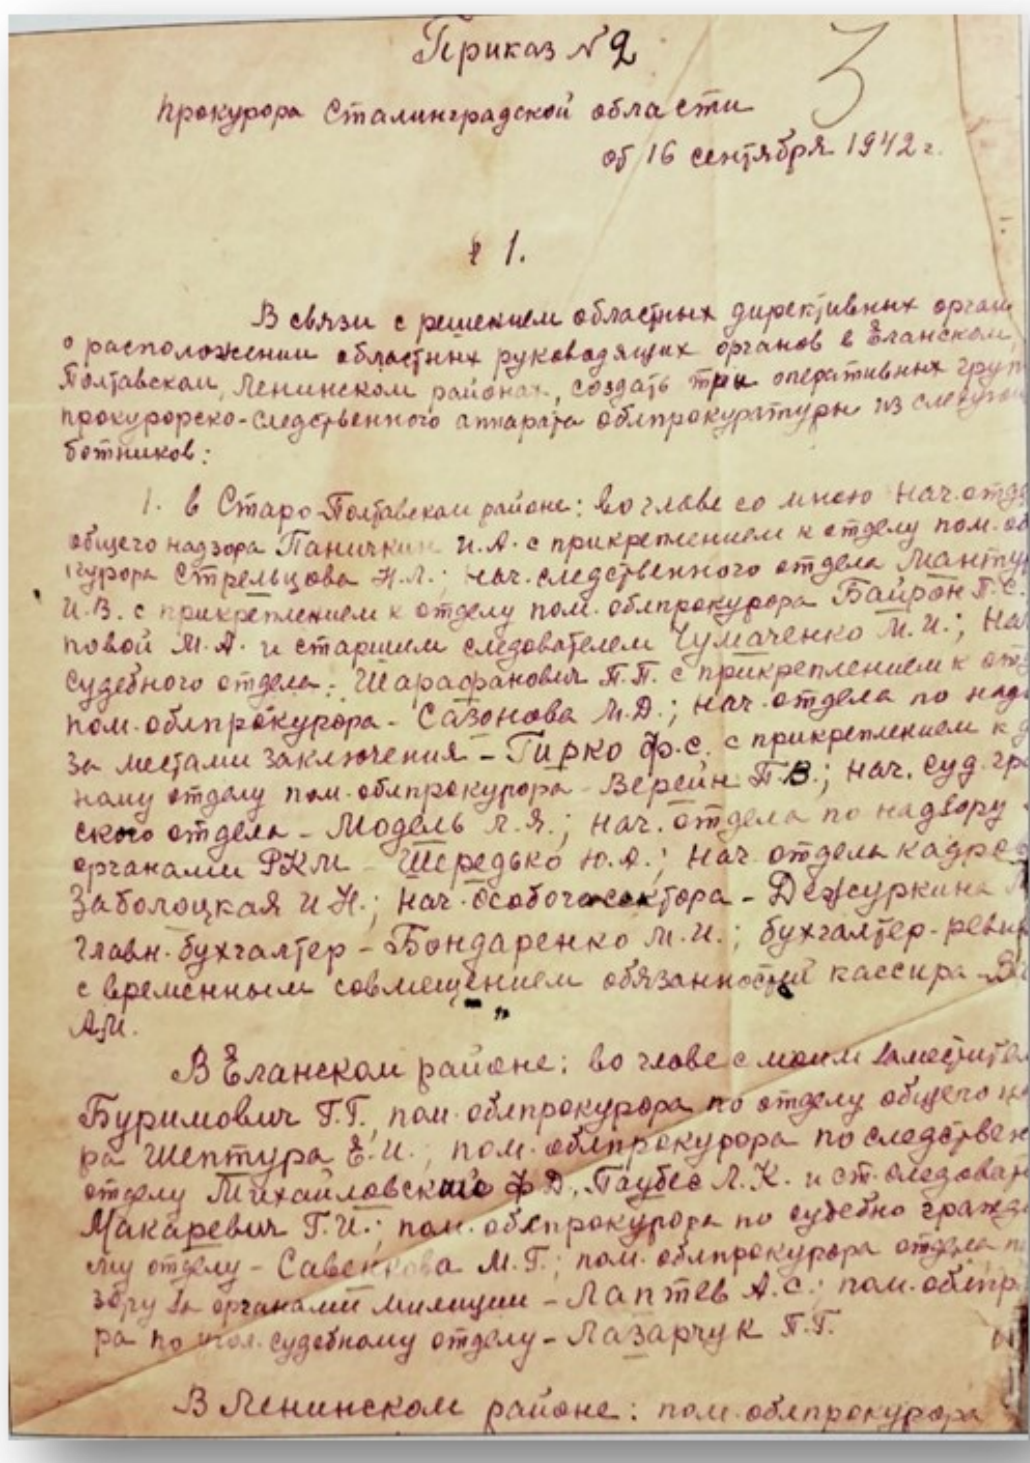 Приказ № 2
3
прокурора Сталинградской области
от 16 сентября 1942 г.
§ 1.
В связи с решением областных директивных орган
о расположении областных руководящих органов в Еланском
Полтавском, Ленинском районах, создать три оперативных груп
прокурорско-следственного аппарата облпрокуратуры из следую
ботников:
1. в Старо-Полтавском районе: во главе со мною нач. отде
общего надзора Паничкин И.А. с прикреплением к отделу пом. об
курора Стрельцова Н.Л.; нач. следственного отдела Манту
И.В. с прикреплением к отделу пом. облпрокурора Байрон Г.С.
повой М.А. и старшим следователем Чумаченко М.И.; Нач
судебного отдела: Шарафанович П.П. с прикреплением к отд
пом. облпрокурора - Сазонова М.Д.; нач. отдела по надз
за местами заключения - Гирко Ф.С. с прикреплением к
ному отделу пом. облпрокурора - Верейн П.В.; нач. суд. гра
ского отдела - Модель Л.Я.; нач. отдела по надзору
органами РКМ - Шередько Ю.А.; нач. отдела кадров
Заболоцкая И.Н.; нач. особого сектора - Дежуркина
главн. бухгалтер - Бондаренко М.И.; бухгалтер-ревиз
с временным совмещением обязанностей кассира -
А.И.
В Еланском районе: во главе с моим заместител
Буримович Г.Г., пом. облпрокурора по отделу общего на
ра Шептура Е.И.; пом. облпрокурора по следствен
отделу Михайловского Ф.Д., Таубес Л.К. и ст. следоват
Макаревич Г.И.; пом. облпрокурора по судебно гражд
му отделу - Савенкова М.Г.; пом. облпрокурора отдела по
зору за органами милиции - Лаптев А.С.; пом. облпр
ра по угол. судебному отделу - Лазарчук П.Г.
В Ленинском районе: пом. облпрокурора